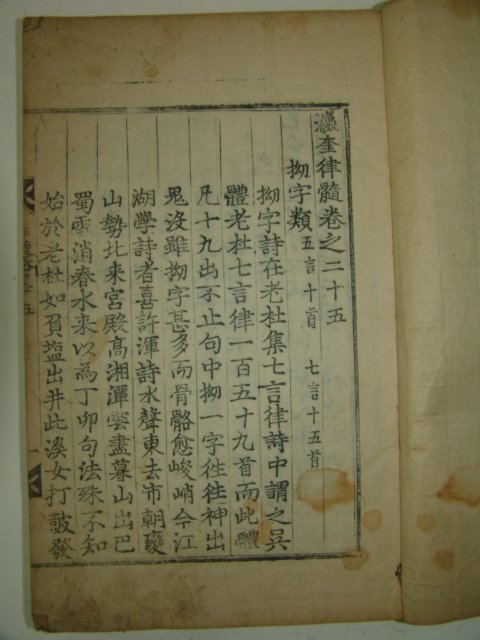 瀛奎律髓卷之二十五
拗字類 五言十首 七言十五首
拗字詩在老杜集七言律詩中謂之吳
體老杜七言律一百五十九首而此體
凡十九出不止句中拗一字徃徃神出
鬼沒雖拗字甚多而骨骼愈峻峭今江
湖學詩者喜許渾詩水聲東去市朝變
山勢北来宮殿髙湘潭雲盡暮山出巴
蜀雪消春水来以為丁卯句法殊不知
始於老杜如負塩出井此溪女打皷發